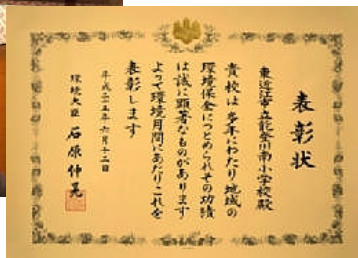 表彰状
東近江市立能登川南小学校殿
貴校は多年にわたり地域の
環境保全につとめられその功績
は誠に顕著なものがあります
よって環境月間にあたりこれを
表彰します
平成二十五年六月十二日
環境大臣 石原伸晃